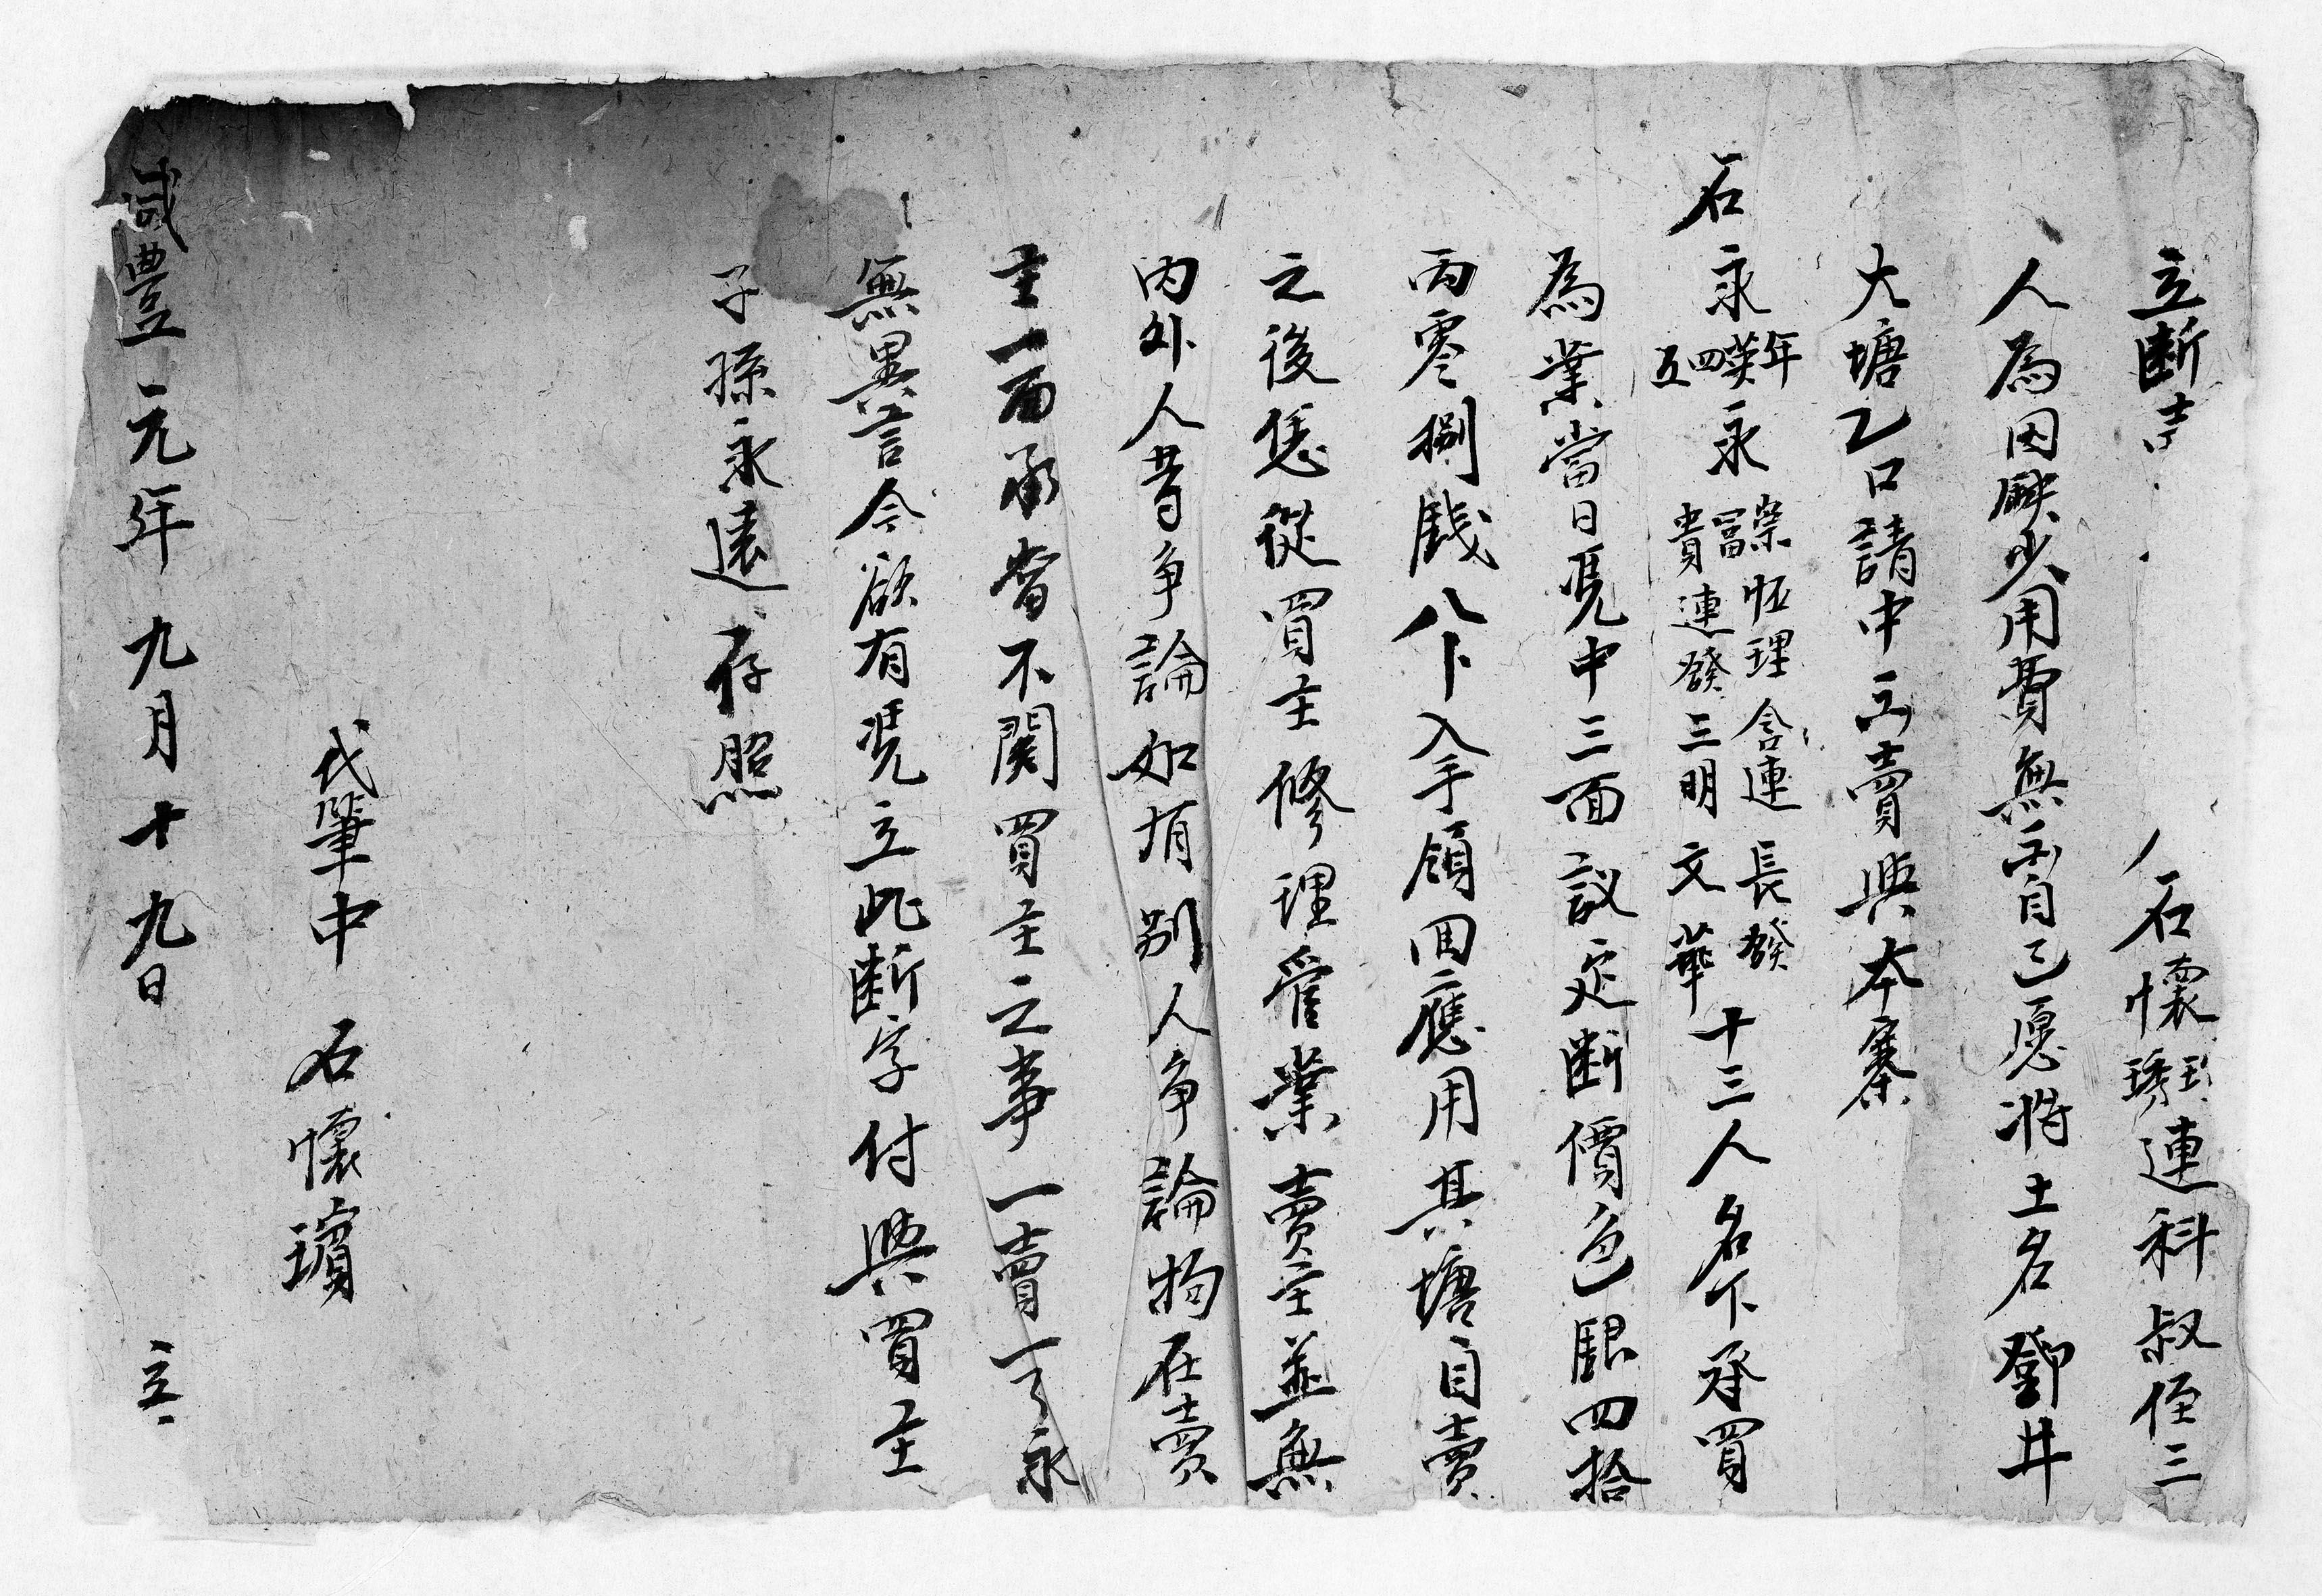 立断 石懷連科叔侄三
人為因缺少用費無出自己愿将土名鄧井
大塘乙口請中立賣與本寨
石永年英四五永榮冨貴恒理連發含連三明長發文華十三人名下承買
為業當日凴中三面議定断價色銀四拾
両零捌錢八卜入手領回應用其塘自賣
之後恁從買主修理管業賣主並無
内外人等争論如有别人争論拘在賣
主一面承當不関買主之事一賣一了永
無異言今欲有凴立此断字付與買主
子孫永遠存照
代筆中 石懷璸
咸豊元年九月十九日 立